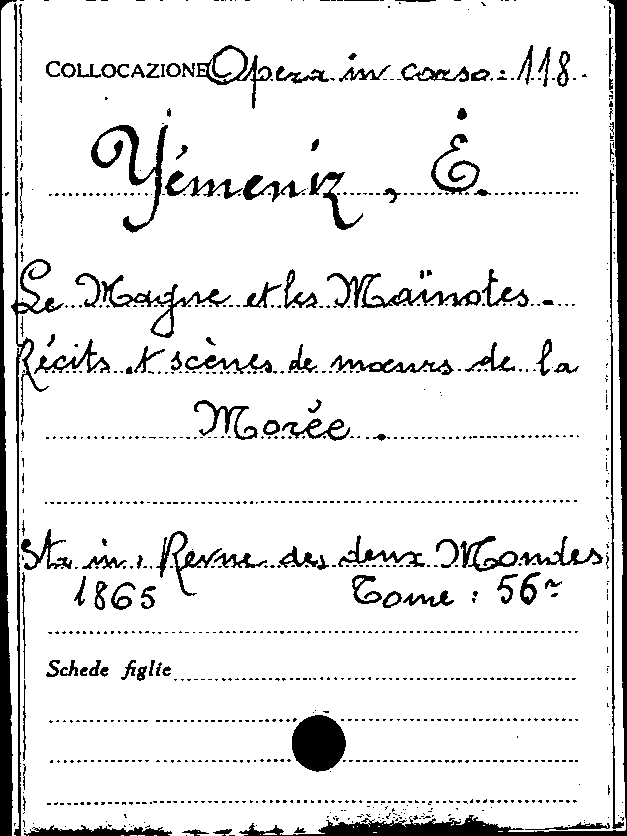 COLLOCAZIONE Opera in corso: 118.
Yémeniz, E.
Le Magne et les Maïnotes.
Récits et scènes de mœurs de la
Morée.
Sta in: Revue des deux Mondes
1865 Tome: 56º
Schede figlie